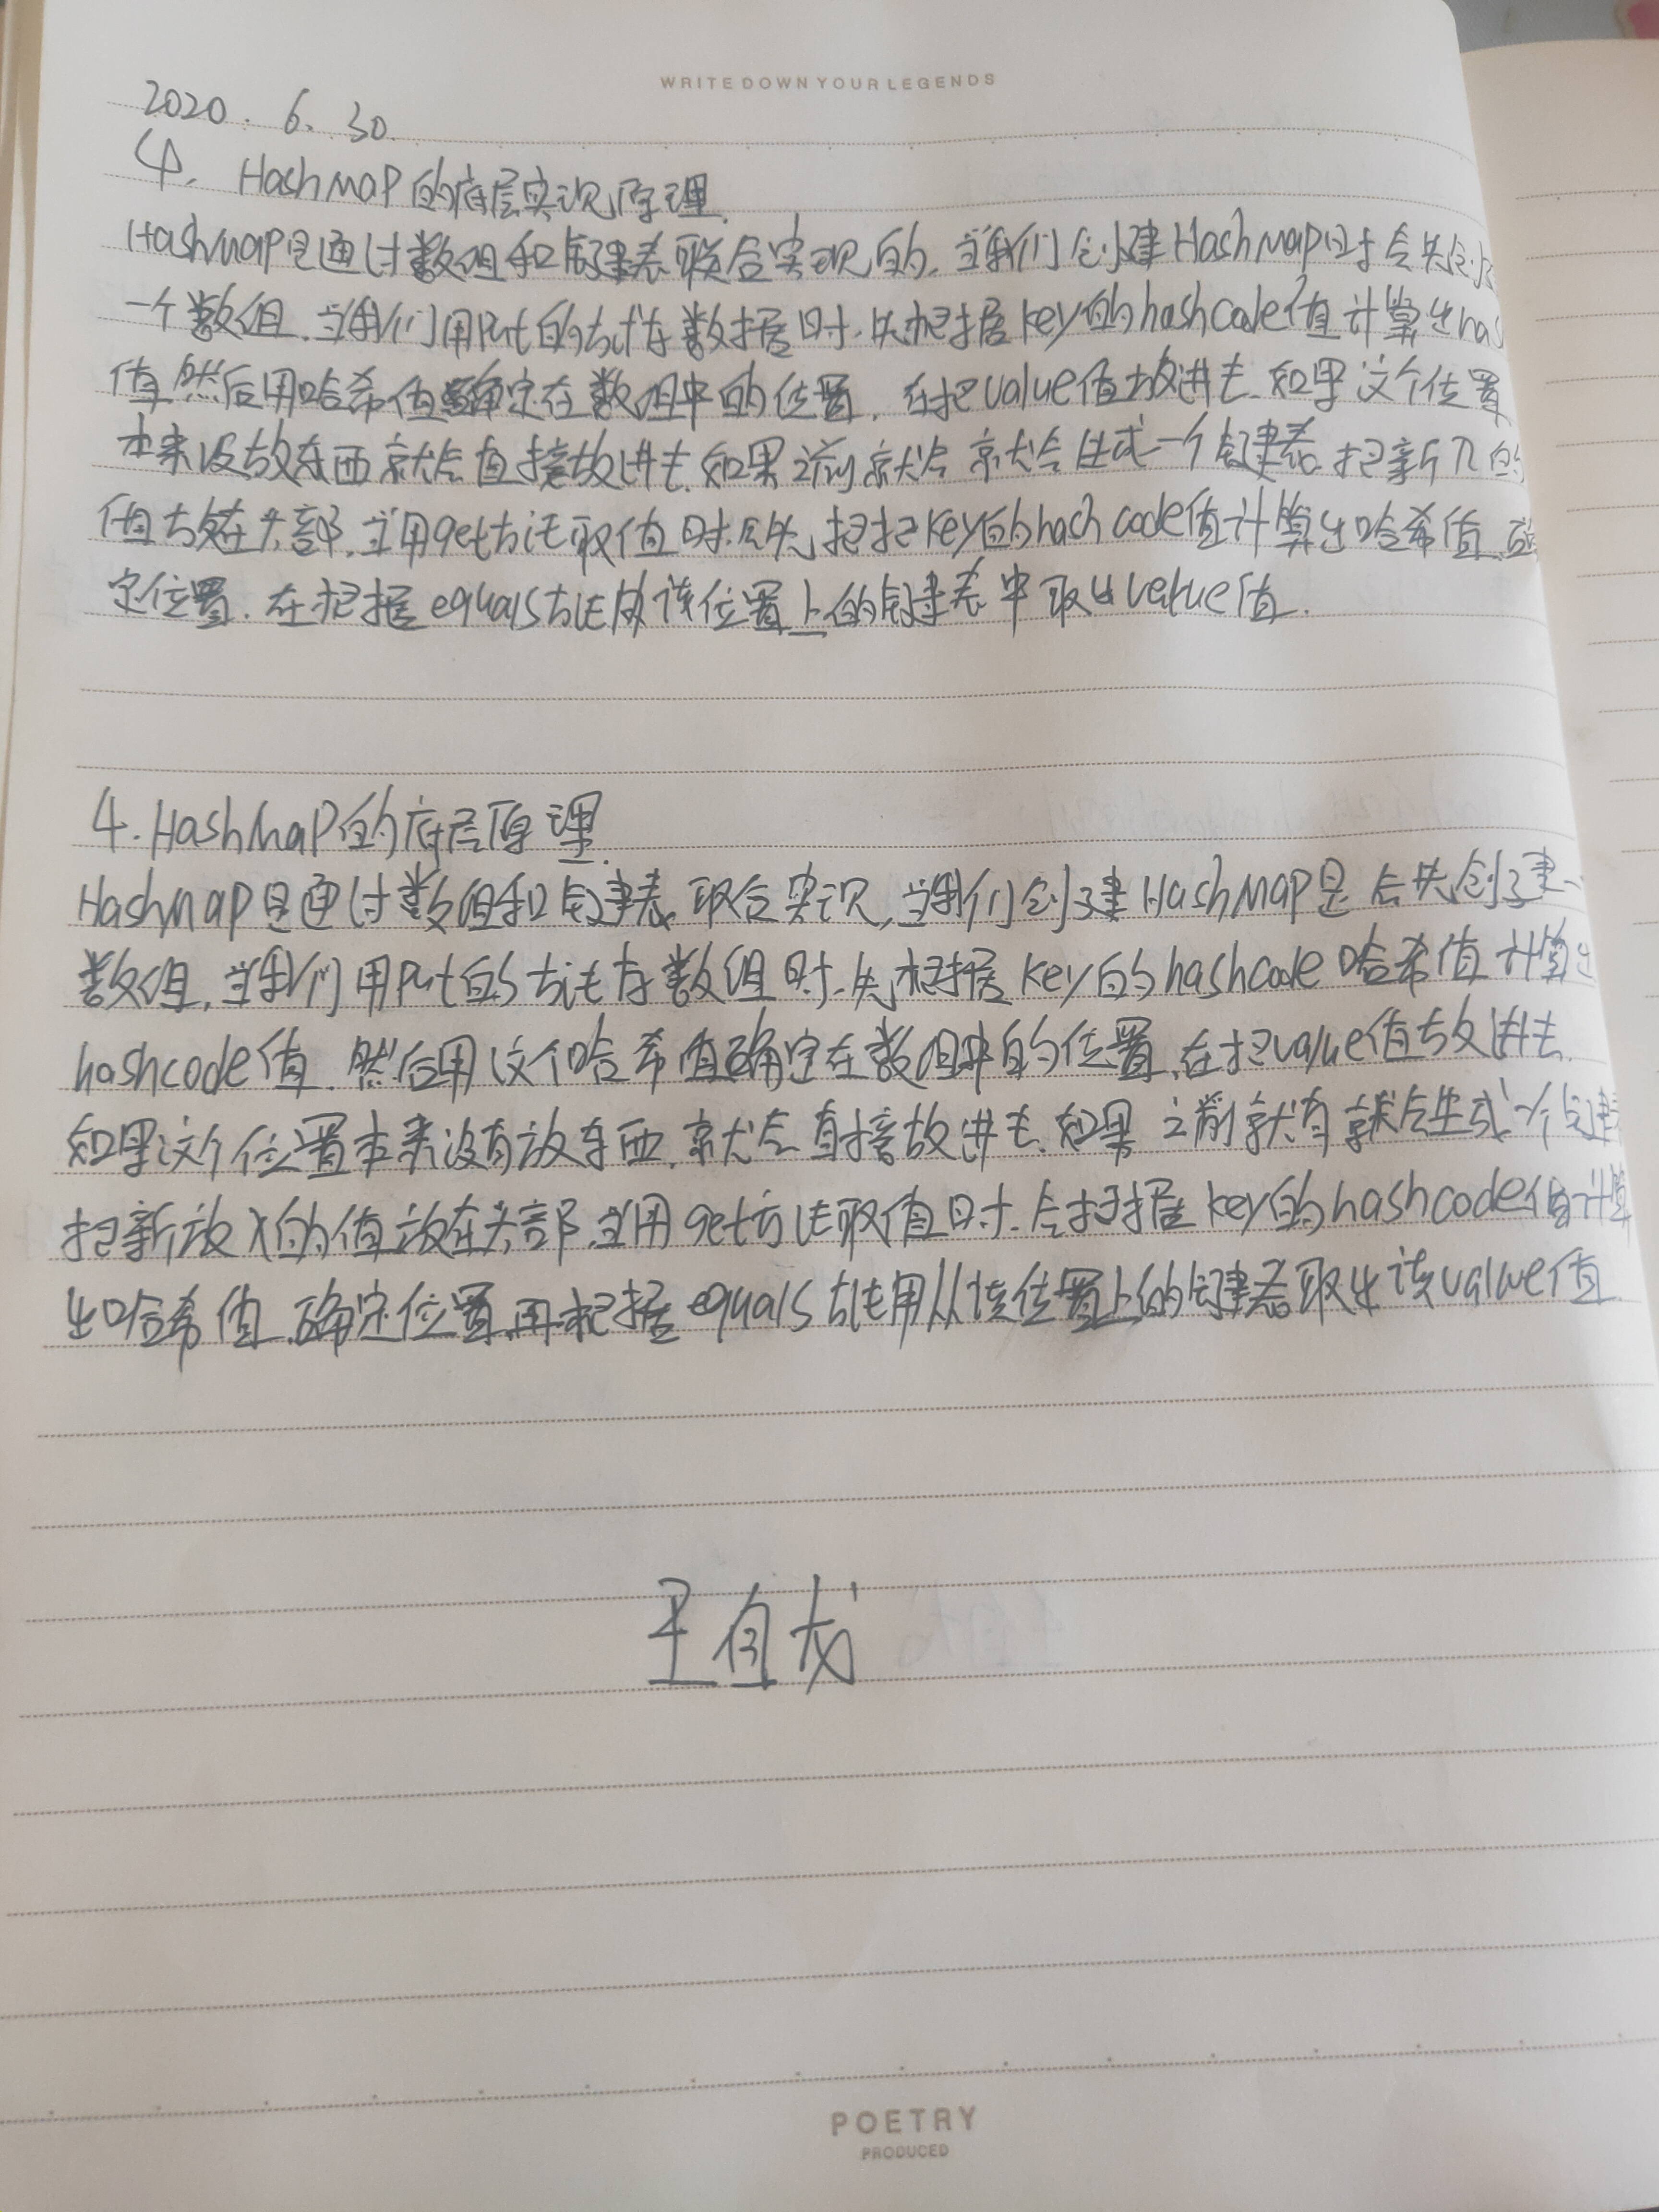 WRITE DOWN YOUR LEGENDS
2020. 6. 30.
4. HashMap的底层实现原理.
HashMap是通过数组和链表联合实现的,当我们创建HashMap时会先创
一个数组,当我们用Put的方式存数据时.先根据key的hashcode值计算出has
值然后用哈希值确定在数组中的位置,在把value值放进去.如果这个位置
本来没放东西就会直接放进去.如果之前就会就会生成一个链表.把新入的
值放在头部,当用get方法取值时.会先把key的hashcode值计算出哈希值,确
定位置.在根据equals方法从该位置上的链表中取出value值.
4.HashMap的底层原理.
HashMap是通过数组和链表联合实现,当我们创建HashMap是会先创建一
数组,当我们用Put的方法存数组时.先根据key的hashcode哈希值计算出
hashcode值.然后用这个哈希值确定在数组中的位置,在把value值放进去.
如果这个位置本来没有放东西,就会直接放进去.如果之前就有就会生成一个链
把新放入的值放在头部,当用get方法取值时.会根据key的hashcode值计算
出哈希值.确定位置,再根据equals方法用从该位置上的链表取出该value值
王自龙
POETRY
PRODUCED